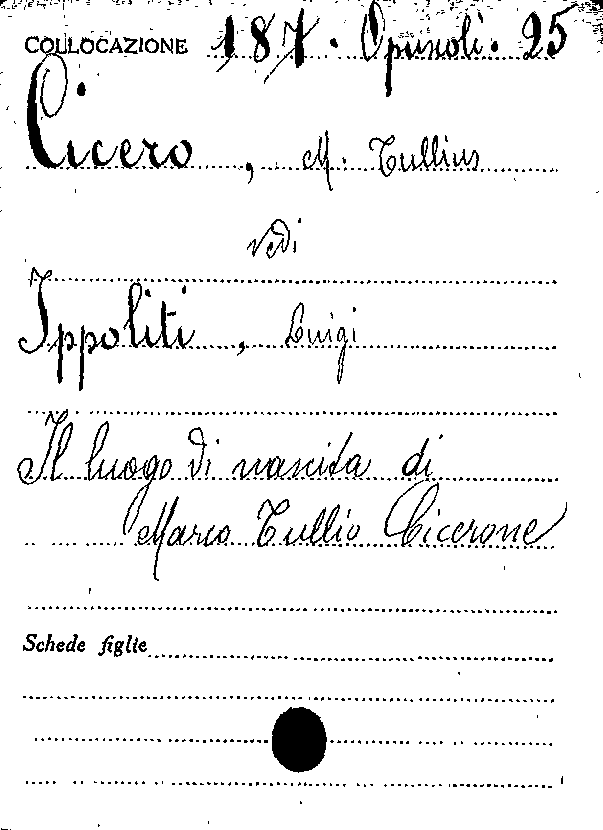 COLLOCAZIONE 187. Opuscoli. 25
Cicero, M. Tullius
vedi
Ippoliti, Luigi
Il luogo di nascita di
Marco Tullio Cicerone
Schede figlie